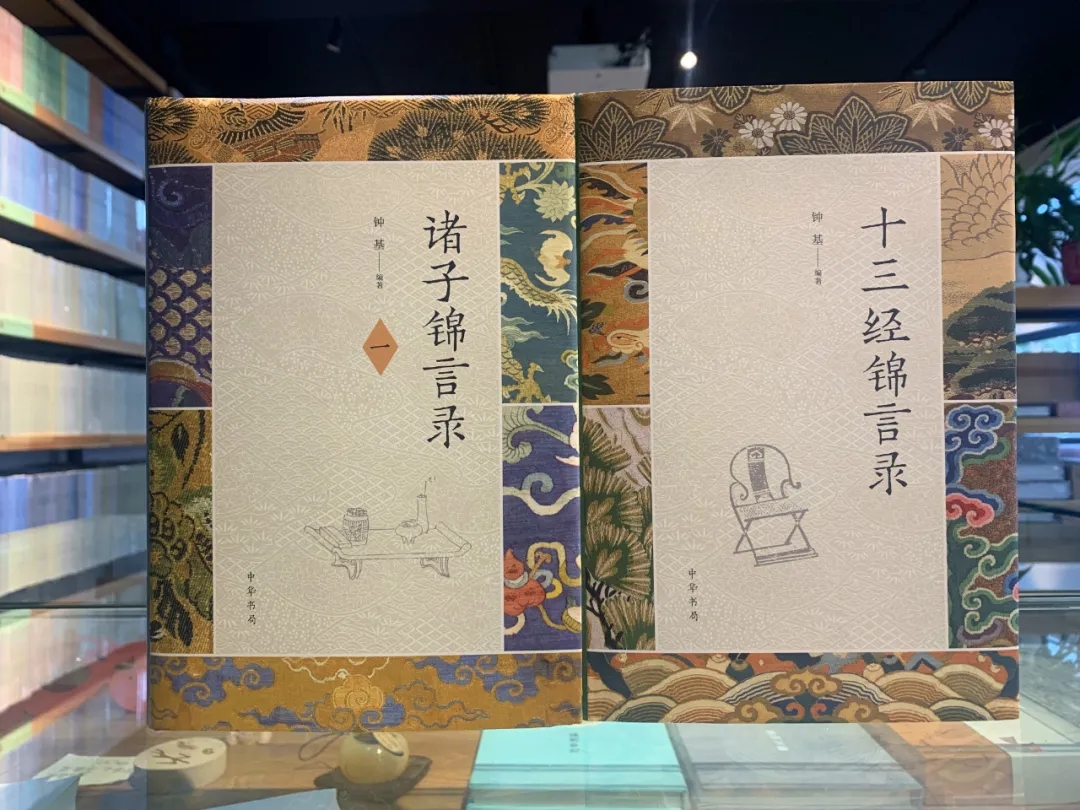 诸子锦言录
钟基——编著
一
中华书局
十三经锦言录
钟基——编著
中华书局